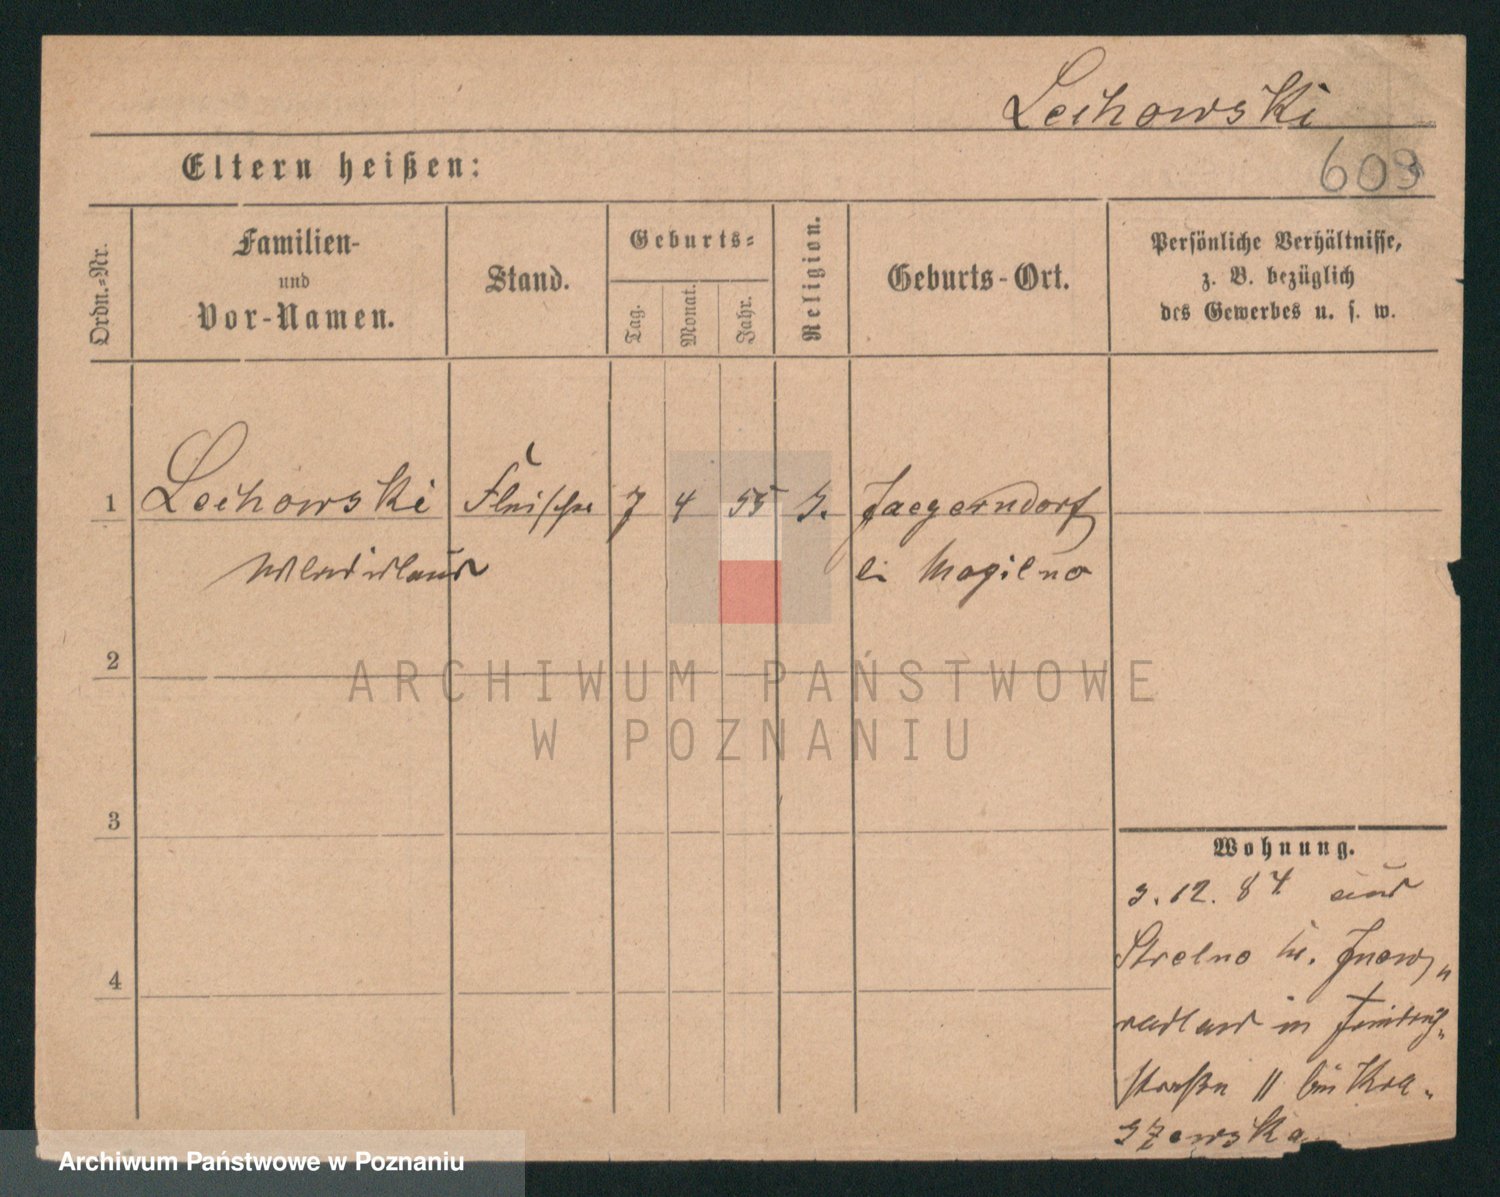 Leihowski
603
Eltern heißen:
Ordn.-Nr.
Familien-
und
Vor-Namen.
Stand.
Geburts-
Tag.
Monat.
Jahr.
Religion.
Geburts-Ort.
Persönliche Verhältnisse,
z. B. bezüglich
des Gewerbes u. s. w.
1 Leihowski Fleischer 7 4 55 Jaegerndorf
bei Mogilno
2
ARCHIWUM PAŃSTWOWE
W POZNANIU
3
4
Wohnung.
3. 12. 84 aus
Strelno Inow
in
straße 11 bei Kra-
szewska
Archiwum Państwowe w Poznaniu